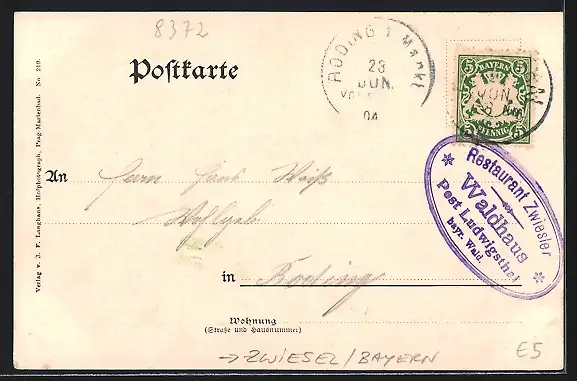 8372
Postkarte
RODING 1 Markt
23
JUN.
04
BAYERN
5 5
JUN.
PFENNIG
5 5
Restaurant Zwiesler
Waldhaus
Post Ludwigsthal
bayr. Wald.
Verlag v. J. F. Langhans, Hofphotograph, Prag-Marienbad. No 219.
An Herrn Weiß
Wohlgeb.
in Roding
Wohnung
(Straße und Hausnummer)
→ ZWIESEL/BAYERN
E5